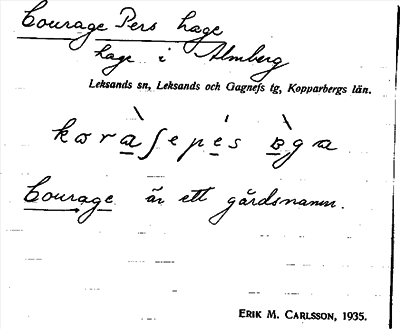 Courage Pers hage
hage i Almberg
Leksands sn, Leksands och Gagnefs tg, Kopparbergs län.
koràʃepés ɑ̀gɑ
Courage är ett gårdsnamn.
ERIK M. CARLSSON, 1935.